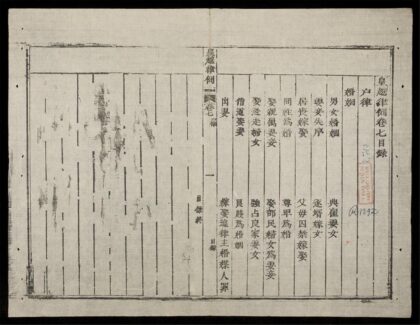 皇越律例卷七目錄
户律
婚姻
男女婚姻 典雇妻女
妻妾失序 逐壻嫁女
居喪嫁娶 父母囚禁嫁娶
同姓爲婚 尊卑爲婚
娶親屬妻妾 娶部民婦女爲妻妾
娶逃走婦女 強占良家妻女
僧道娶妻 良賤爲婚
出妻 嫁娶違律主婚媒人罪
目錄終
皇越律例 卷七 一 目錄